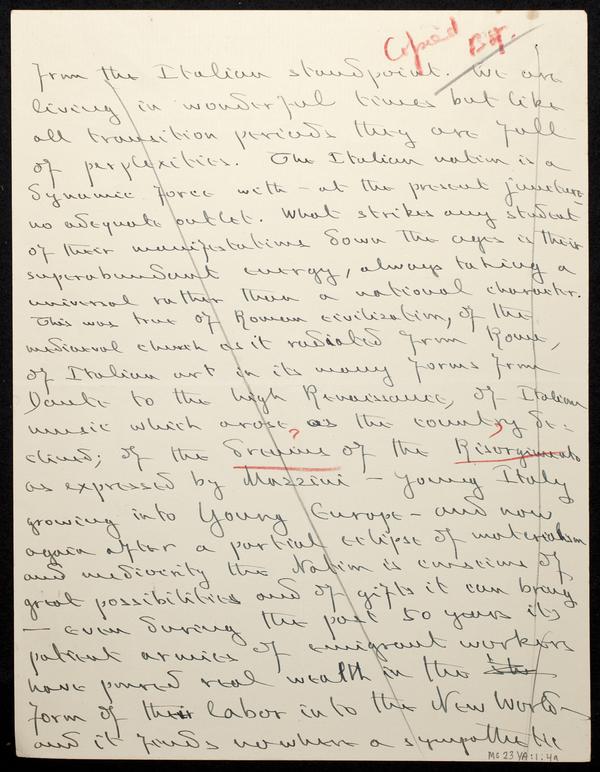 Copied
from the Italian standpoint. We are
living in wonderful times but like
all transition periods they are full
of perplexities. The Italian nation is a
dynamic force with – at the present juncture –
no adequate outlet. What strikes any student
of their manifestations down the ages is their
superabundant energy, always taking a
universal rather than a national character.
This was true of Roman civilization, of the
mediaeval church as it radiated from Rome,
of Italian art in its many forms from
Dante to the high Renaissance, of Italian
music which arose as the country de=
clined; of the ? of the Risorgimento ?
as expressed by Mazzini – Young Italy
growing into Young Europe – and now
again after a partial eclipse of materialism
and mediocrity the Nation is conscious of
great possibilities and of gifts it can bring
– even during the past 50 years its
patient armies of emigrant workers
have poured real wealth in the the
form of their labor into the New World –
and it finds nowhere a sympathetic
Ms 23 VA:1:4a